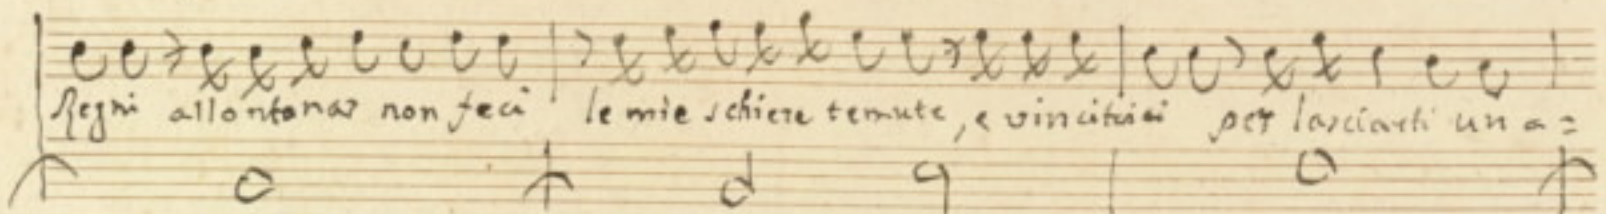 Regni allontanar non feci le mie schiere temute, e vincitrici per lasciarti un a=